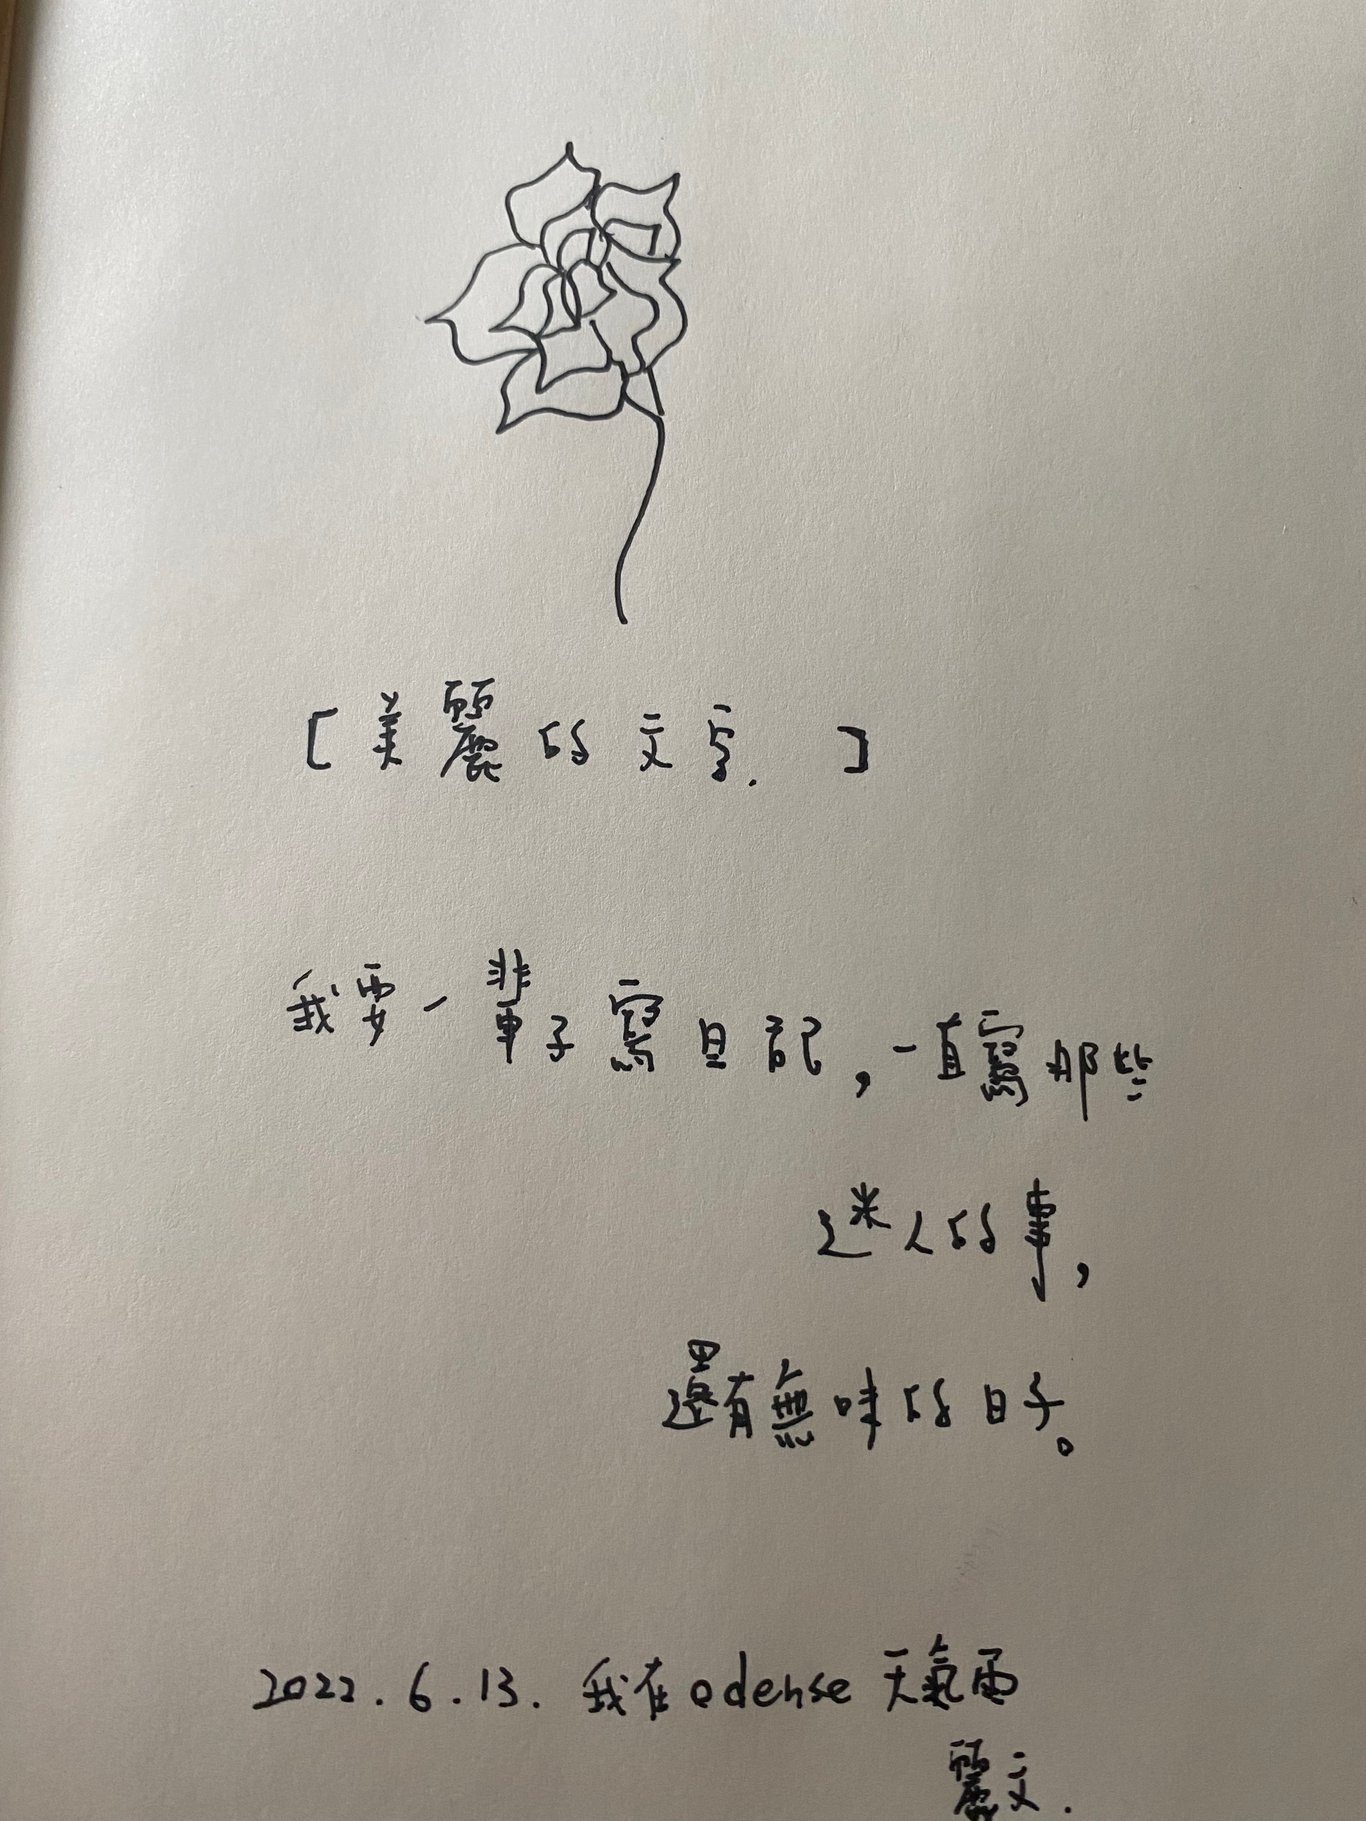 [美麗的文字.]
我要一輩子寫日記，一直寫那些
迷人的事，
還有無味的日子。
2022.6.13. 我在odense 天氣雨
麗文.